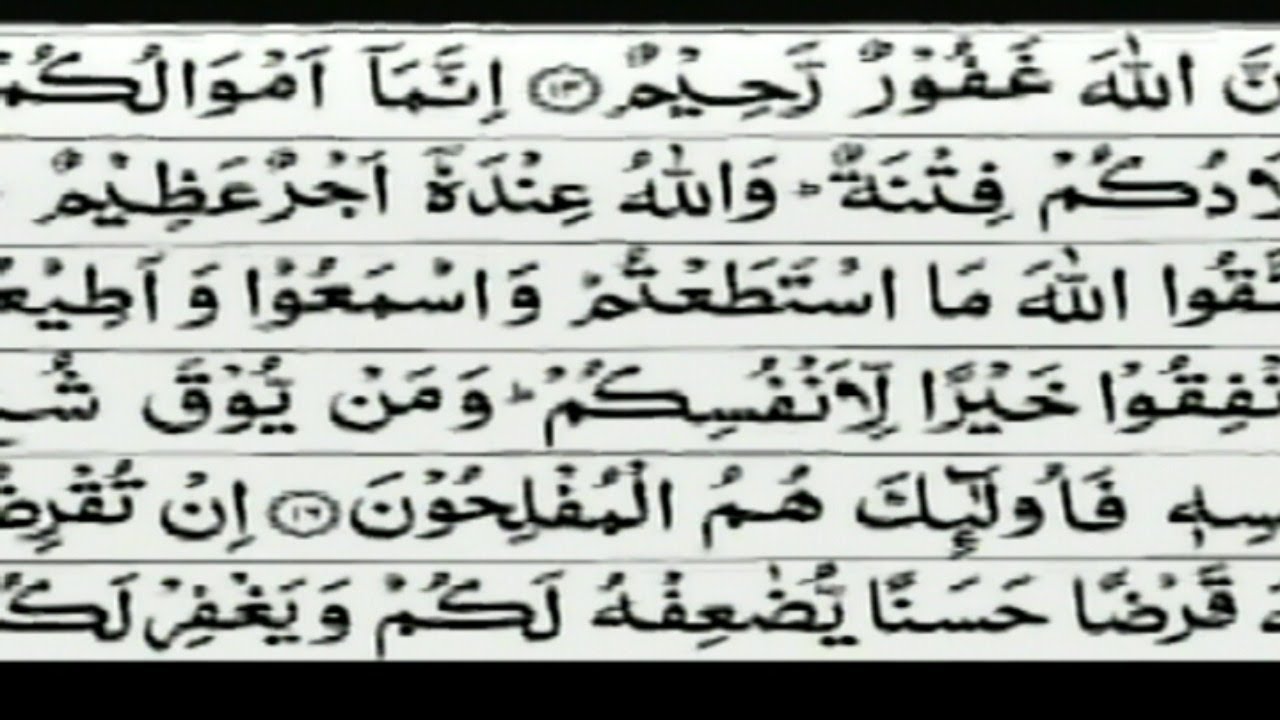 نَّ اللّٰهَ غَفُوْرٌ رَّحِيْمٌ ۝۱۴ اِنَّمَآ اَمْوَالُكُمْ
لَادُكُمْ فِتْنَةٌ ؕ وَاللّٰهُ عِنْدَهٗٓ اَجْرٌ عَظِيْمٌ
تَّقُوا اللّٰهَ مَا اسْتَطَعْتُمْ وَاسْمَعُوْا وَ اَطِيْعُ
نْفِقُوْا خَيْرًا لِّاَنْفُسِكُمْ ؕ وَمَنْ يُّوْقَ شُ
سِهٖ فَاُولٰٓئِكَ هُمُ الْمُفْلِحُوْنَ ۝۱۶ اِنْ تُقْرِضُ
هَ قَرْضًا حَسَنًا يُّضٰعِفْهُ لَكُمْ وَيَغْفِرْ لَكُ